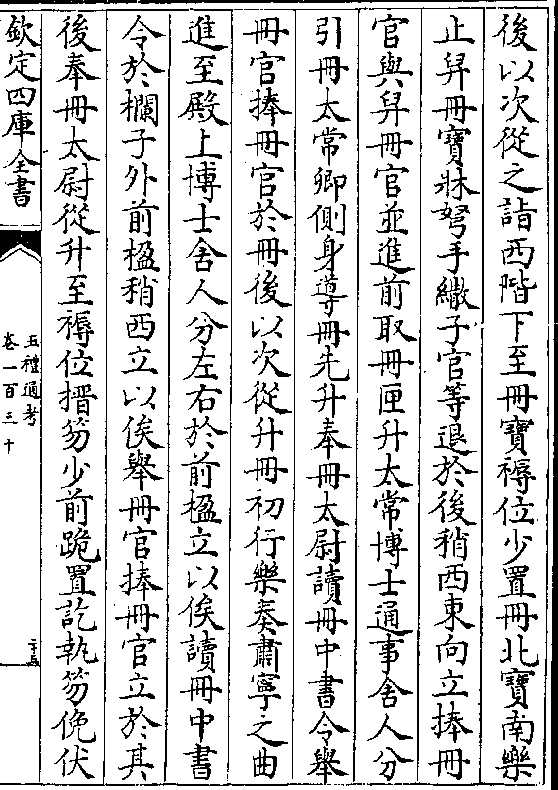 後以次從之詣西階下至冊寶褥位少置冊北寶南樂
止舁冊寶牀弩手繖子官等退於後稍西東向立捧冊
官與舁冊官並進前取冊匣升太常博士通事舍人分
引冊太常卿側身導冊先升奉冊太尉讀冊中書令舉
冊官捧冊官於冊後以次從升冊初行樂奏肅寧之曲
進至殿上博士舍人分左右於前楹立以俟讀冊中書
令於欄子外前楹稍西立以俟舉冊官捧冊官立於其
後奉冊太尉從升至褥位搢笏少前跪置訖執笏俛伏
欽定四庫全書
五禮通考
卷一百三十
二十五